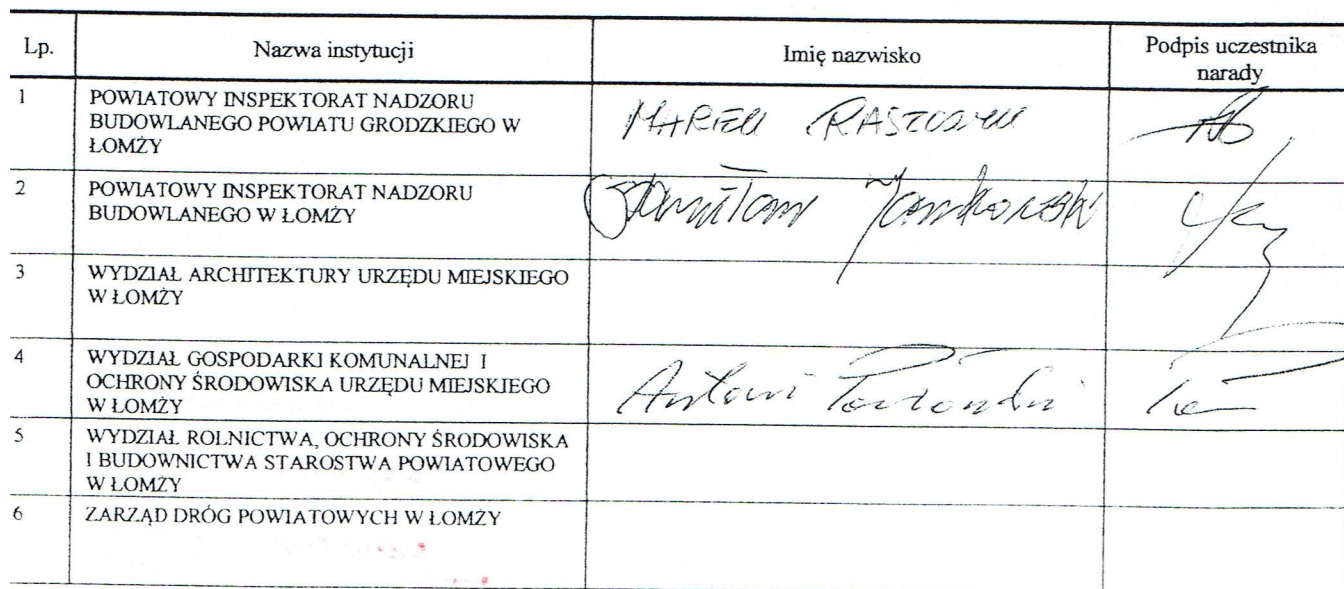 Lp. Nazwa instytucji Imię nazwisko Podpis uczestnika
narady
1 POWIATOWY INSPEKTORAT NADZORU
BUDOWLANEGO POWIATU GRODZKIEGO W
ŁOMŻY
MAREK
2 POWIATOWY INSPEKTORAT NADZORU
BUDOWLANEGO W ŁOMŻY
Jankowski
3 WYDZIAŁ ARCHITEKTURY URZĘDU MIEJSKIEGO
W ŁOMŻY
4 WYDZIAŁ GOSPODARKI KOMUNALNEJ I
OCHRONY ŚRODOWISKA URZĘDU MIEJSKIEGO
W ŁOMŻY
Antoni
5 WYDZIAŁ ROLNICTWA, OCHRONY ŚRODOWISKA
I BUDOWNICTWA STAROSTWA POWIATOWEGO
W ŁOMŻY
6 ZARZĄD DRÓG POWIATOWYCH W ŁOMŻY